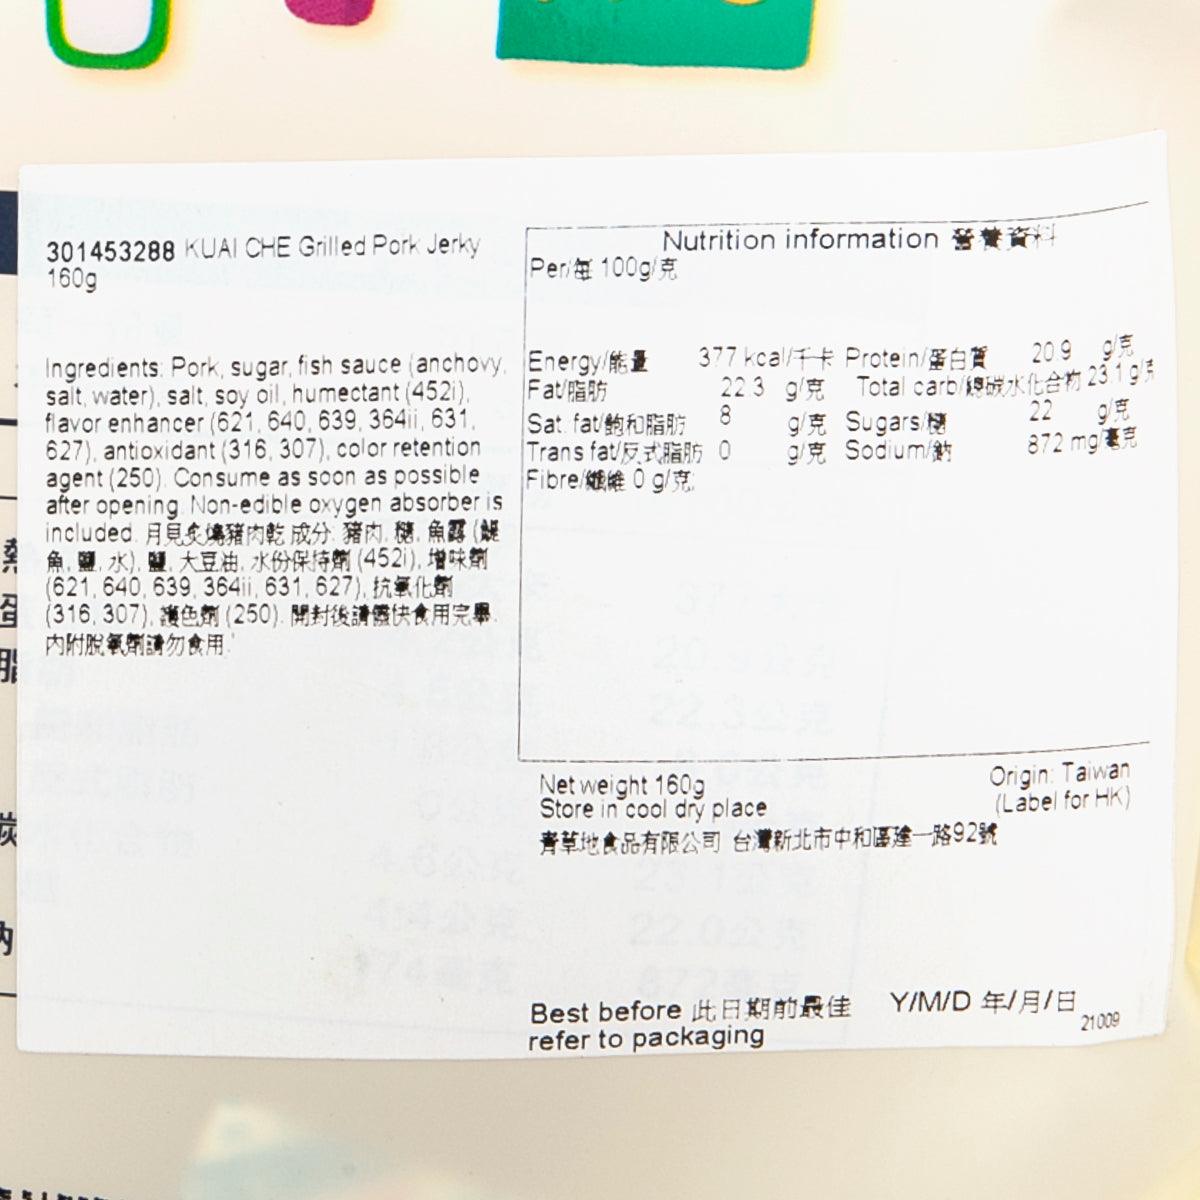 301453288 KUAI CHE Grilled Pork Jerky
160g
Ingredients: Pork, sugar, fish sauce (anchovy,
salt, water), salt, soy oil, humectant (452i),
flavor enhancer (621, 640, 639, 364ii, 631,
627), antioxidant (316, 307), color retention
agent (250). Consume as soon as possible
after opening. Non-edible oxygen absorber is
included. 月見炙燒豬肉乾 成分: 豬肉, 糖, 魚露 (鯷
魚, 鹽, 水), 鹽, 大豆油, 水份保持劑 (452i), 增味劑
(621, 640, 639, 364ii, 631, 627), 抗氧化劑
(316, 307), 護色劑 (250). 開封後請儘快食用完畢.
內附脫氧劑請勿食用.
Nutrition information 營養資料
Per/每 100g/克
Energy/能量 377 kcal/千卡 Protein/蛋白質 20.9 g/克
Fat/脂肪 22.3 g/克 Total carb/總碳水化合物 23.1 g/克
Sat. fat/飽和脂肪 8 g/克 Sugars/糖 22 g/克
Trans fat/反式脂肪 0 g/克 Sodium/鈉 872 mg/毫克
Fibre/纖維 0 g/克;
Net weight 160g Origin: Taiwan
Store in cool dry place (Label for HK)
青草地食品有限公司 台灣新北市中和區建一路92號
Best before 此日期前最佳 Y/M/D 年/月/日
refer to packaging 21009